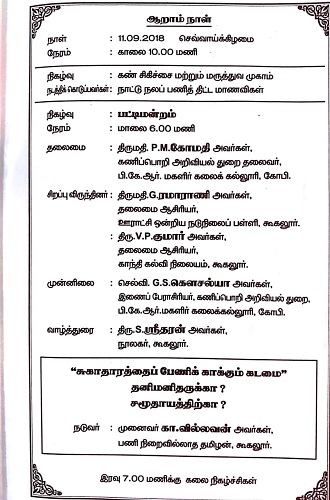 ஆறாம் நாள்
நாள் : 11.09.2018 செவ்வாய்க்கிழமை
நேரம் : காலை 10.00 மணி
நிகழ்வு : கண் சிகிச்சை மற்றும் மருத்துவ முகாம்
நடத்திக் கொடுப்பவர்கள் : நாட்டு நலப் பணித் திட்ட மாணவிகள்
நிகழ்வு : பட்டிமன்றம்
நேரம் : மாலை 6.00 மணி
தலைமை : திருமதி. P.M.கோமதி அவர்கள்,
கணிப்பொறி அறிவியல் துறை தலைவர்,
பி.கே.ஆர். மகளிர் கலைக் கல்லூரி, கோபி.
சிறப்பு விருந்தினர் : திருமதி.G.ரமாராணி அவர்கள்,
தலைமை ஆசிரியர்,
ஊராட்சி ஒன்றிய நடுநிலைப் பள்ளி, கூகலூர்.
: திரு.V.P.குமார் அவர்கள்,
தலைமை ஆசிரியர்,
காந்தி கல்வி நிலையம், கூகலூர்.
முன்னிலை : செல்வி. G.S.கௌசல்யா அவர்கள்,
இணைப் பேராசிரியர், கணிப்பொறி அறிவியல் துறை,
பி.கே.ஆர்.மகளிர் கலைக்கல்லூரி, கோபி.
வாழ்த்துரை : திரு.S.ஸ்ரீதரன் அவர்கள்,
நூலகர், கூகலூர்.
“சுகாதாரத்தைப் பேணிக் காக்கும் கடமை”
தனிமனிதருக்கா ?
சமூதாயத்திற்கா ?
நடுவர் : முனைவர் கா.வில்லவன் அவர்கள்,
பணி நிறைவில்லாத தமிழன், கூகலூர்.
இரவு 7.00 மணிக்கு கலை நிகழ்ச்சிகள்